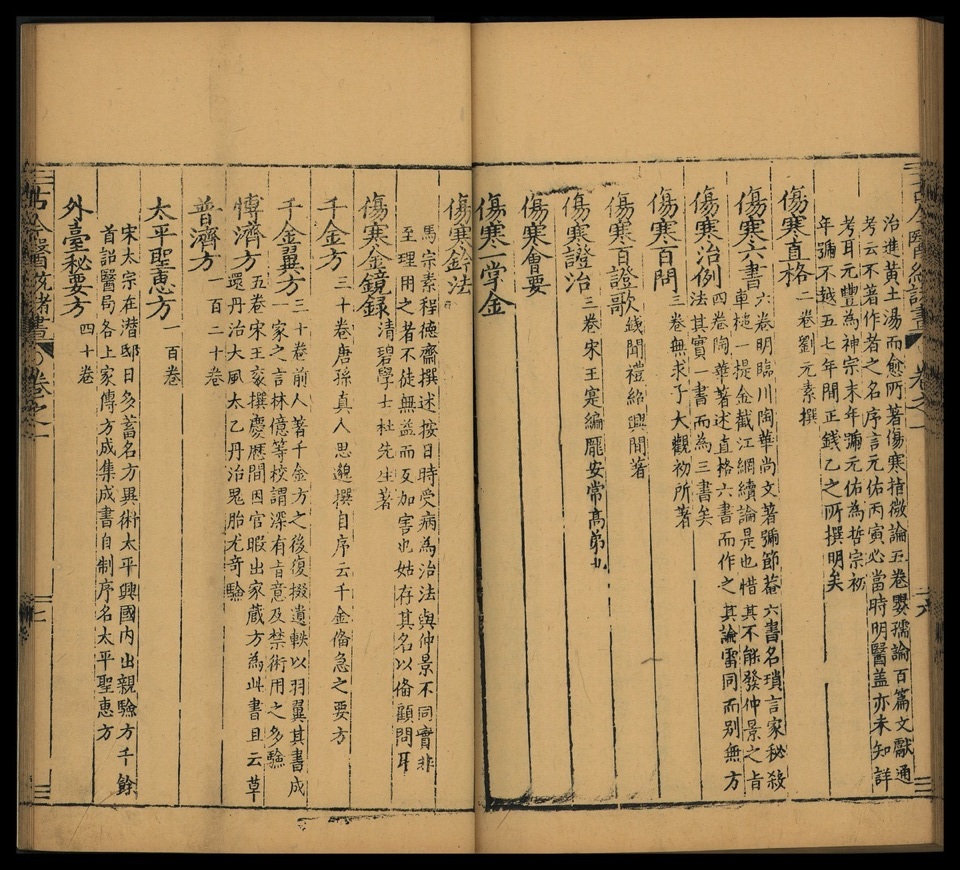 治進黃土湯而愈所著傷寒指微論五卷嬰孺論百篇文獻通
考云不著作者之名序言元佑丙寅必當時明醫蓋亦未知詳
考耳元豐為神宗末年彌元佑為哲宗初
年彌不越五七年間正錢乙之所撰明矣
傷寒直格二卷劉元素撰
傷寒六書六卷明臨川陶華尚文著彌節菴六書名瑣言家秘殺
車槌一提金截江網續論是也惜其不能發仲景之旨
傷寒治例四卷陶華著述直格六書而作之其論雷同而別無方
法其實一書而為三書矣
傷寒百問三卷無求子大觀初所著
傷寒百證歌錢聞禮紹興間著
傷寒證治三卷宋王寔編龐安常高弟也
傷寒會要
傷寒一掌金
傷寒鈐法
馬宗素程德齋撰述按日時受病為治法與仲景不同實非
至理用之者不徒無益而反加害也姑存其名以俻顧問耳
傷寒金鏡錄清碧學士杜先生著
千金方三十卷唐孫真人思邈撰自序云千金俻急之要方
千金翼方三十卷前人著千金方之後復掇遺軼以羽翼其書成
一家之言林億等校謂深有旨意及禁術用之多驗
博濟方五卷宋王袞撰慶歷間因官暇出家藏方為此書且云草
還丹治大風太乙丹治鬼胎尤奇驗
普濟方一百二十卷
太平聖惠方一百卷
宋太宗在潛邸日多蓄名方異術太平興國內出親驗方千餘
首詔醫局各上家傳方成集成書自制序名太平聖惠方
外臺秘要方四十卷